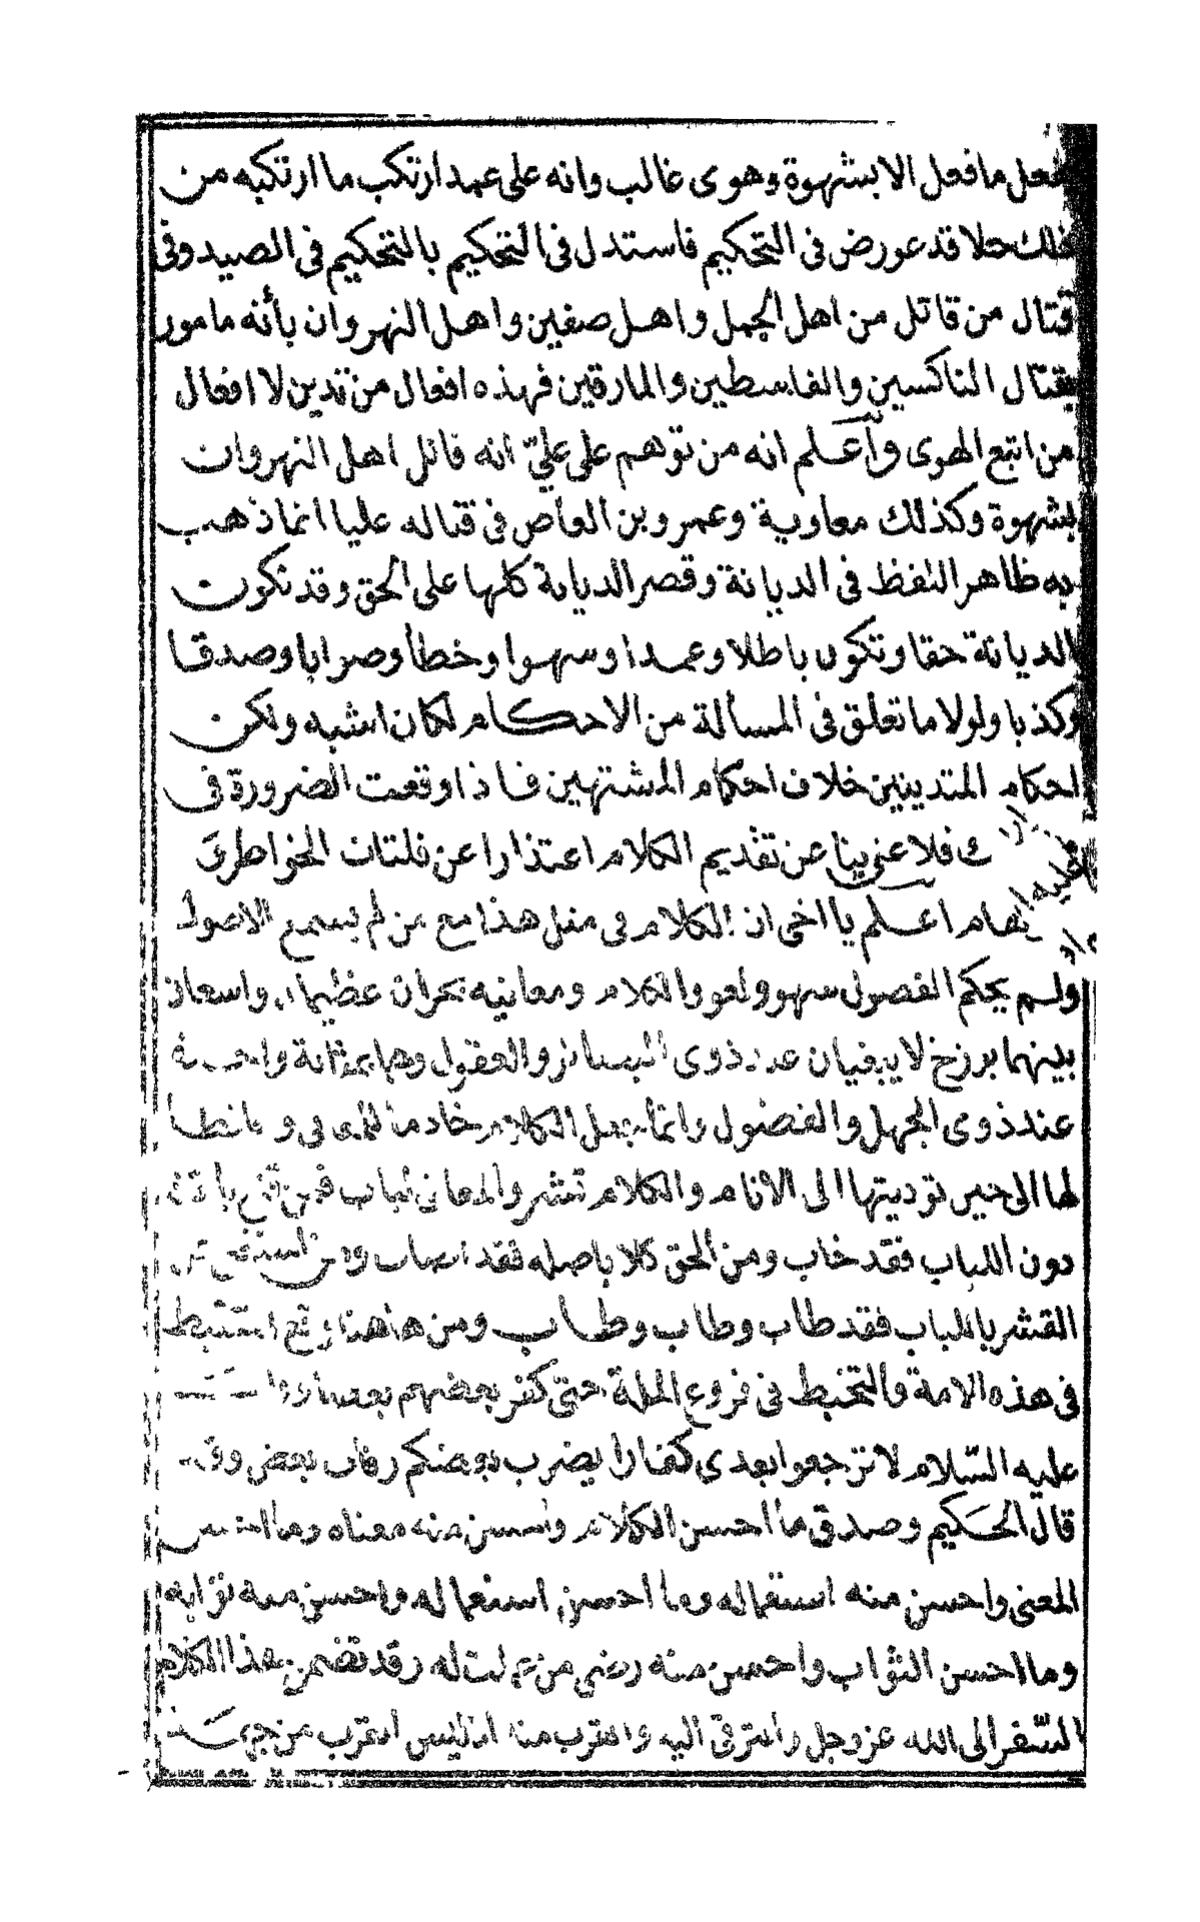 فعل ما فعل الا بشهوة وهوى غالب وانه على عمد ارتكب ما ارتكبه من
ذلك حلا قد عورض فى التحكيم فاستدل فى التحكيم بالتحكيم فى الصيد وفى
قتال من قاتل من اهل الجمل واهل صفين واهل النهروان بأنه مامور
بقتال الناكسين والقاسطين والمارقين فهذه افعال من تدين لا افعال
من اتبع الهوى واعلم انه من توهم على علىّ انه قاتل اهل النهروان
بشهوة وكذلك معاوية وعمرو بن العاص فى قتاله عليا انما ذهب
به ظاهر اللفظ فى الديانة وقصر الديانة كلها على الحق وقد تكون
الديانة حقا وتكون باطلا وعمدا وسهوا وخطأ وصوابا وصدقا
وكذبا ولولا ما تعلق فى المسألة من الاحكام لكان اشبه ولكن
احكام المتدينين خلاف احكام المشتهين فاذا وقعت الضرورة فى
فلا عنى بنا عن تقديم الكلام اعتذارا عن فلتات الخواطر
اعلم يا اخى ان الكلام فى مثل هذا مع من لم يسمع الاصول
ولم يحكم الفصول سهو ولغو والكلام ومعانيه بحران عظيمان واسعان
بينهما برزخ لا يبغيان عند ذوى البصائر والعقول وهما بمثابة واحدة
عند ذوى الجهل والفضول وانما جعل الكلام خادما للمعانى و
لها الى حين توديتها الى الانام والكلام قشر والمعانى لباب فمن قنع
دون اللباب فقد خاب ومن الحق كلا باصله فقد اصاب ومن استغنى عن
القشر باللباب فقد طاب وطاب وطاب ومن هاهنا وقع التخبط
فى هذه الامة والتخبط فى فروع الملة حتى كفر بعضهم بعضا
عليه السّلام لا ترجعوا بعدى كفارا يضرب بعضكم رقاب بعض وقد
قال الحكيم وصدق ما احسن الكلام واحسن منه معناه وما احسن
المعنى واحسن منه استعماله وما احسن استعماله واحسن منه ثوابه
وما احسن الثواب واحسن منه رضى من عملت له وقد تضمن هذا الكلام
السّفر الى الله عز وجل والترقى اليه والقرب منه اذ ليس القرب من